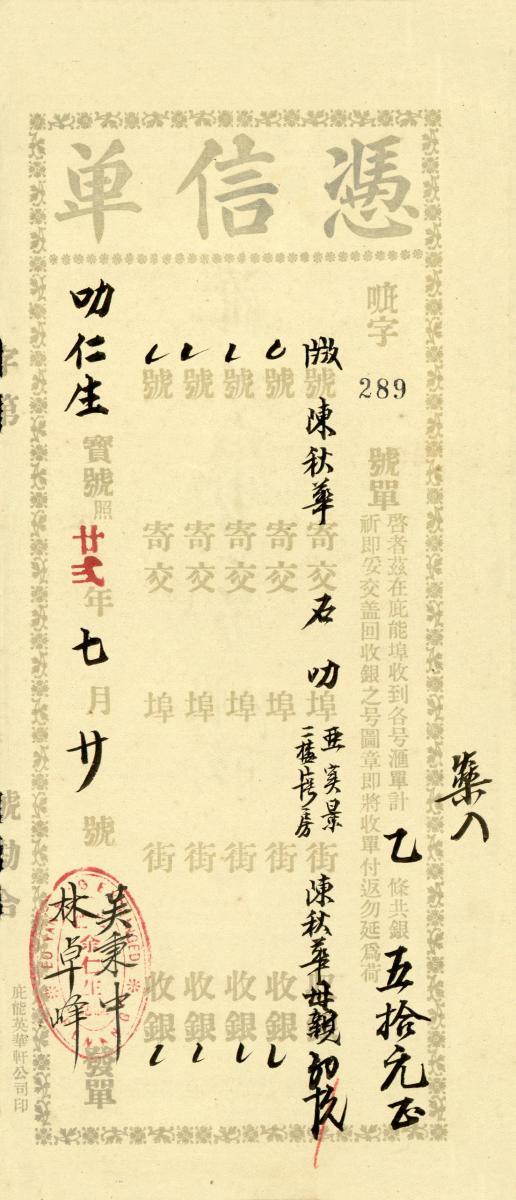 憑信单
㕷字
289
號單
啓者茲在庇能埠收到各号滙單計乙條共銀五拾元正
祈即妥交盖回收銀之号圖章即將收單付返勿延爲荷
號陳秋華寄交石叻埠
二樓
街陳秋華母親收銀
號寄交埠街收銀
號寄交埠街收銀
號寄交埠街收銀
號寄交埠街收銀
叻仁生寶號照廿弍年七月廿號
發單
吳秉中
林卓峰
余仁生
庇能英華軒公司印